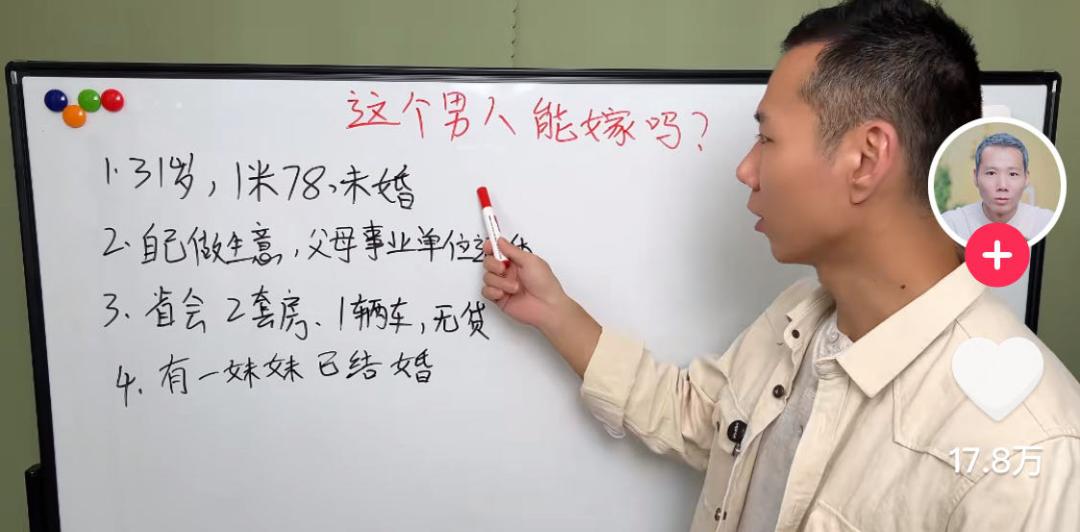 这个男人能嫁吗?
1.31岁,1米78、未婚
2.自己做生意,父母事业单位
3.省会2套房、1辆车,无贷
4.有一妹妹已结婚
17.8万